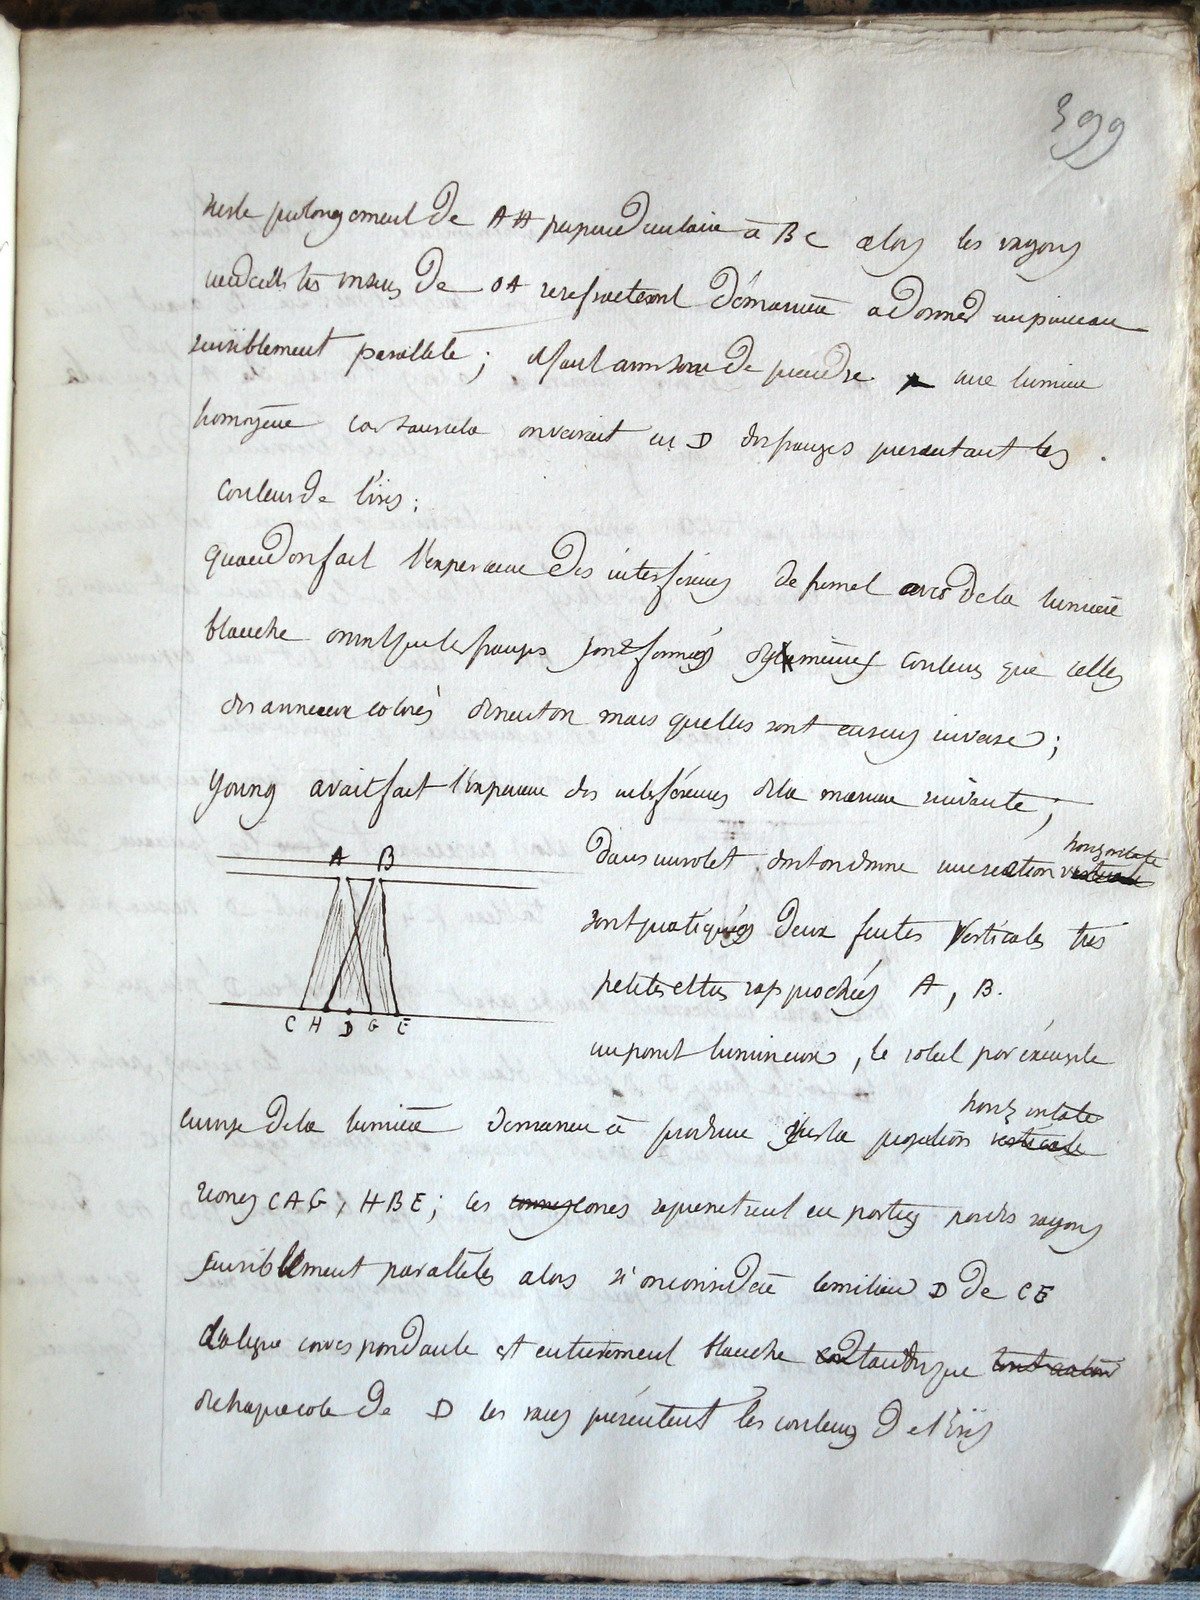 399
sur le prolongement de AH perpendiculaire à BC alors les rayons
de OA se refracteront de maniere a donner un pinceau
sensiblement parallele ; il faut avoir soin de prendre une lumiere
homogène car sans cela on verrait en D des franges presentant les
couleurs de l'iris ;
quand on fait l'experience des interférences de fresnel avec de la lumiere
blanche on voit que les franges sont formées des mêmes couleurs que celles
des anneaux colorés de neuton mais quelles sont en sens inverse ;
young avait fait l'experience des interférences de la maniere suivante ;
A B
C H D G E
horizontale
dans un volet dont on donne une section verticale
sont pratiquées deux fentes verticales très
petites et très rapprochées A, B.
un point lumineux, le soleil par éxemple
horizontale
envoye de la lumière de maniere à produire sur la projection verticale
cones CAG, HBE ; ces cones cones representent en parties par des rayons
sensiblement paralleles alors si on considère le milieu D de CE
la ligne correspondante est entierement blanche tandis que
de chaque coté de D les raies présentent les couleurs de l'iris